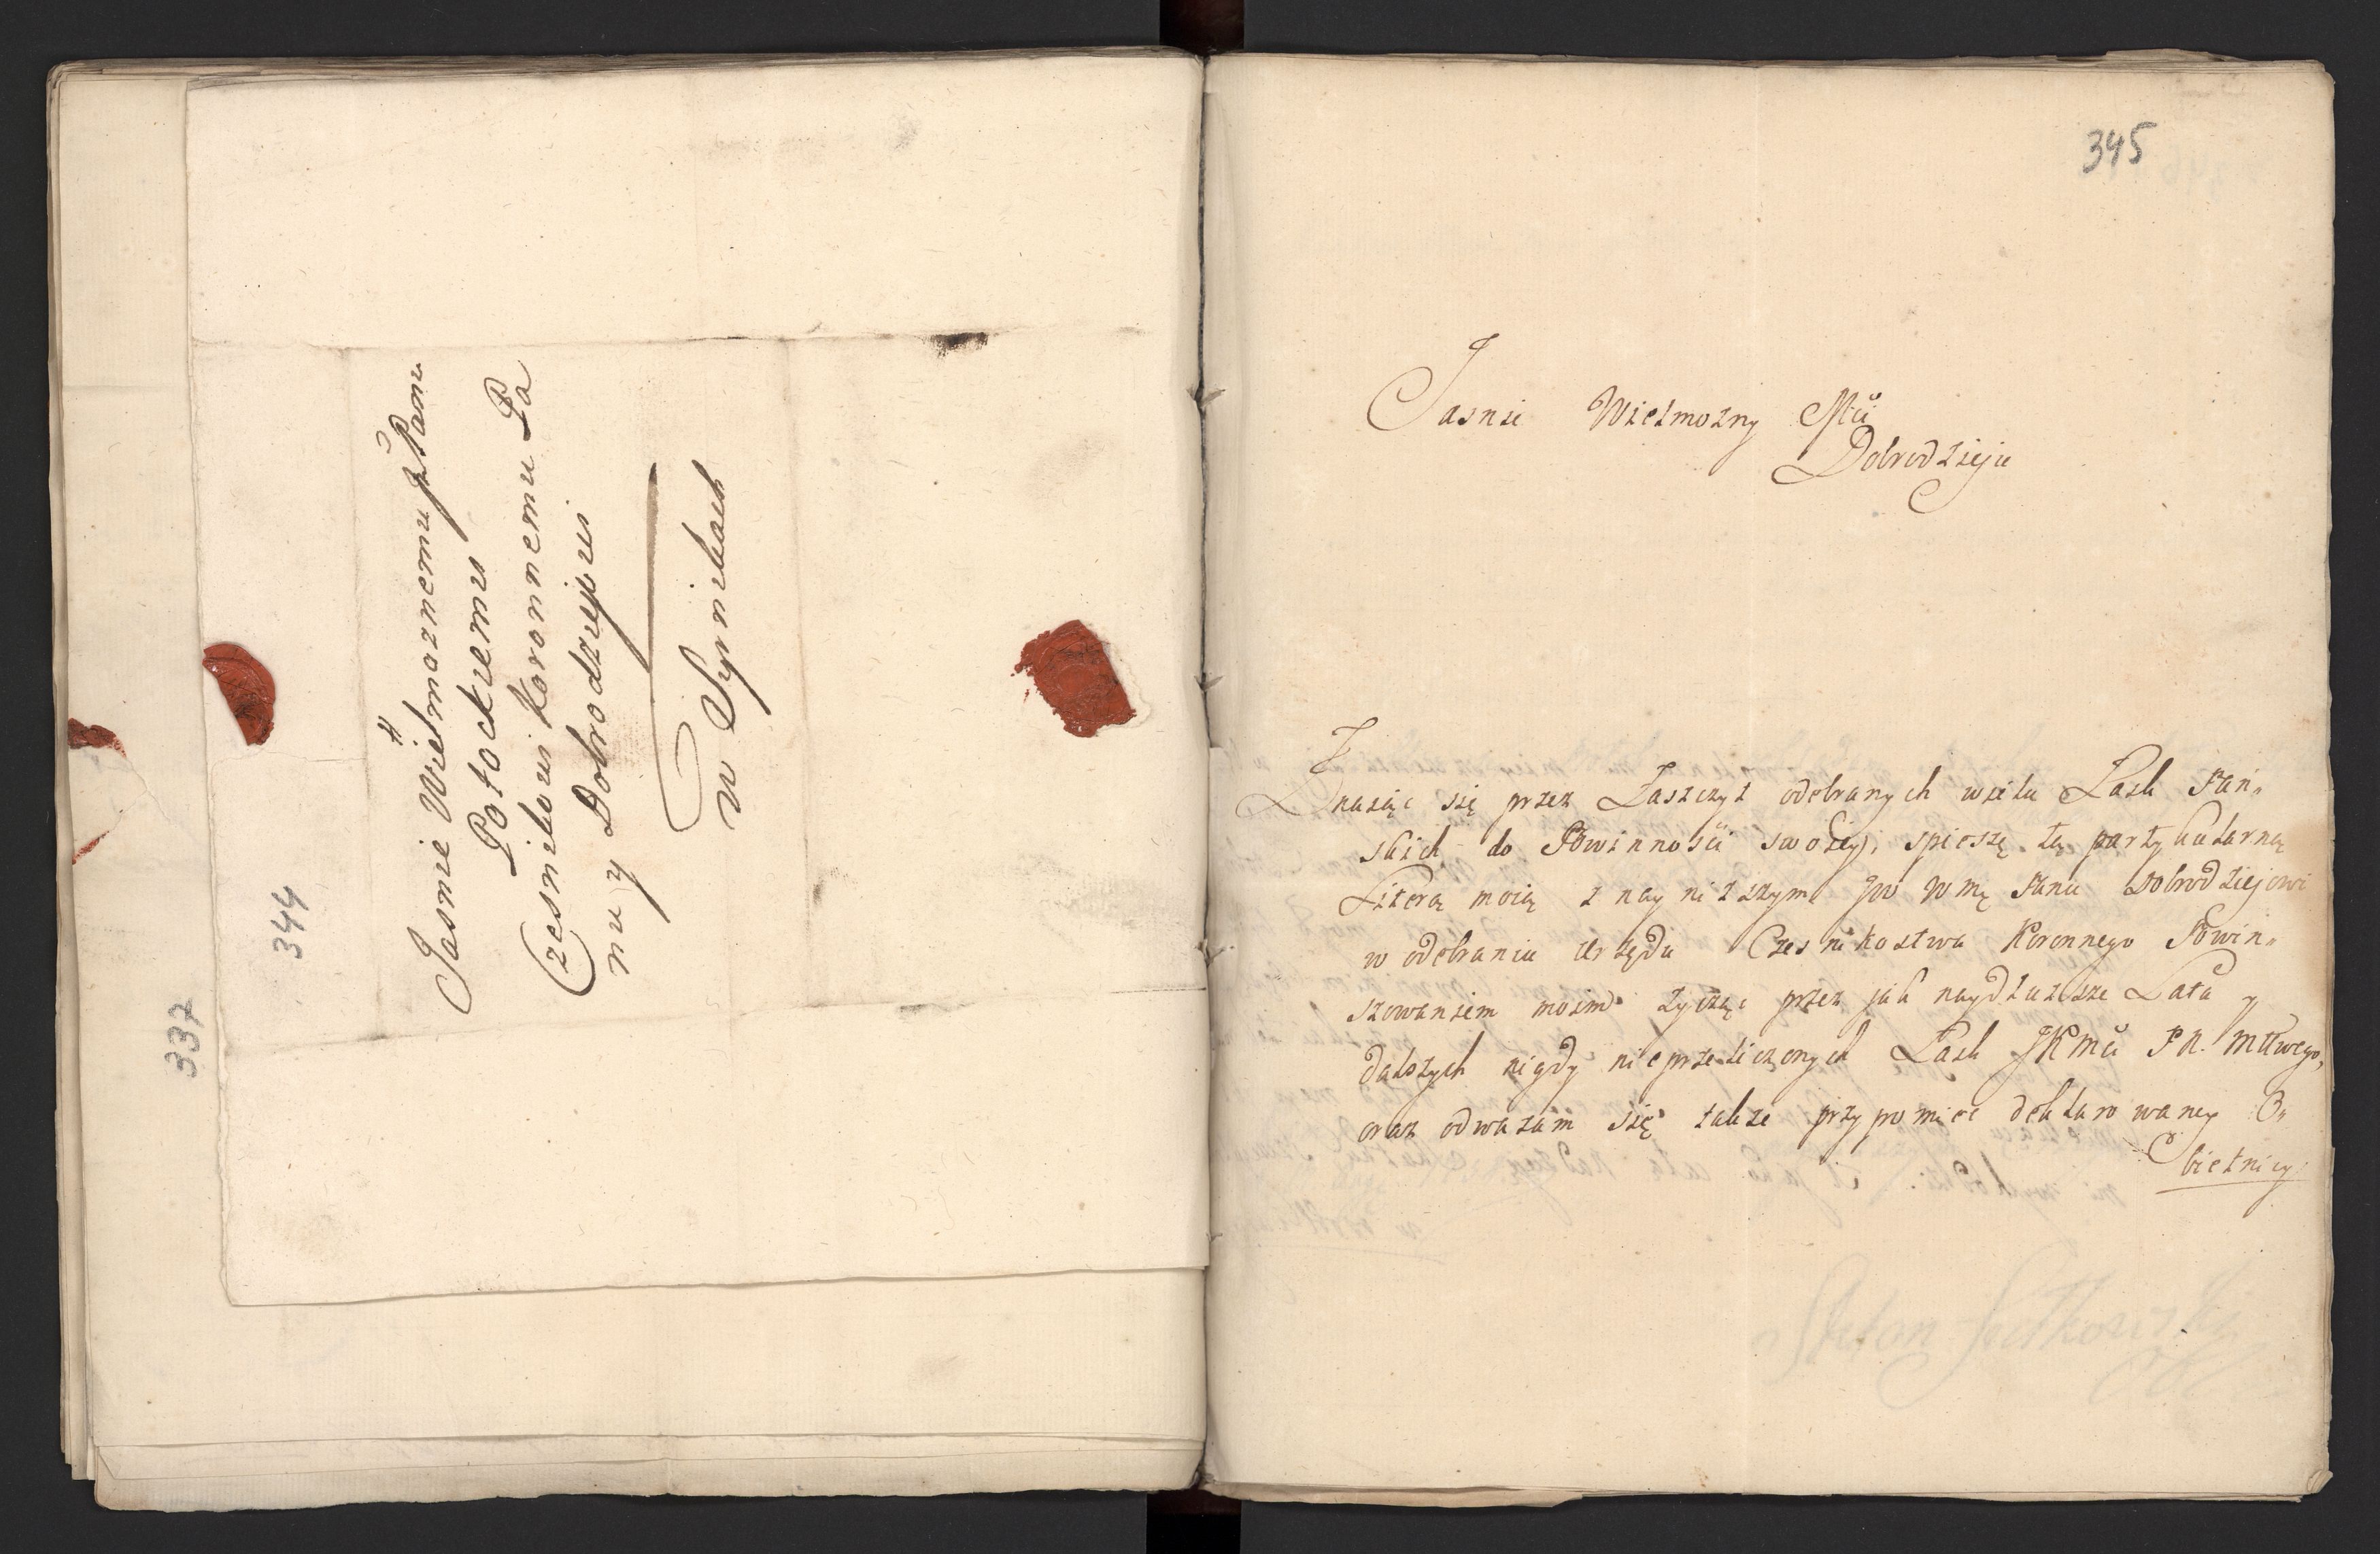 337
344
Jasnie Wielmoznemu Jm̃ Panu
Potockiemu
Czesnikowi Koronnemu Pa
nu y Dobrodziejowi
w Synikach
345
Jasnie Wielmozny Mći
Dobrodzieju
Znaiąc się przez Zaszczyt odebranych wielu Łask Pań„
skich do Powinnosći swoiey, spieszę tą partykularną
Literą moią z nayniższym JW WMę Panu Dobrodziejowi
w odebraniu Urzędu Czesnikostwa Koronnego Powin„
szowaniem moim życząc przez jak naydłuższe Lata y
dalszych nigdy nieprzeliczonych Łask JKMći P N. Młłwego,
oraz odwazam się także przypomieć deklarowaney O„
bietnicy